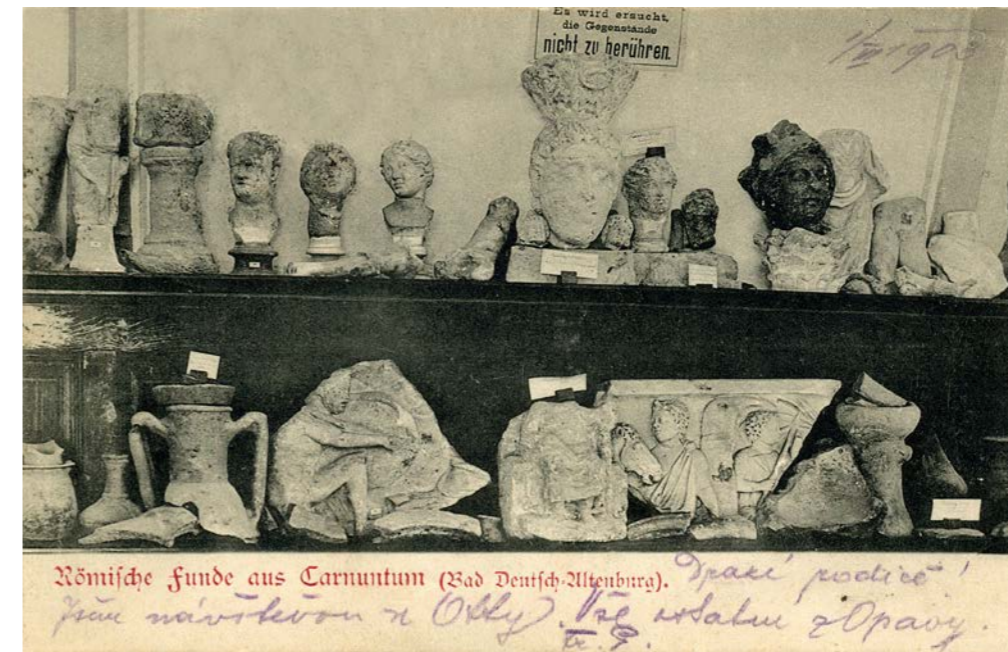 Es wird ersucht,
die Gegenstände
nicht zu berühren.
1/VIII 1903
Römische Funde aus Carnuntum (Bad Deutsch-Altenburg).
Drazí rodiče!
Jsem návštěvou u Otty. Vše ostatní z Opavy.